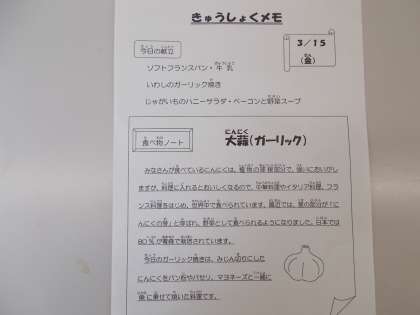 きゅうしょくメモ
3／15
（金）
今日の献立
ソフトフランスパン・牛乳
いわしのガーリック焼き
じゃがいものハニーサラダ・ベーコンと野菜スープ
食べ物ノート
大蒜（ガーリック）
みなさんが食べているにんにくは、植物の球根部分で、強いにおいがし
ますが、料理に入れるとおいしくなるので、中華料理やイタリア料理、フラ
ンス料理をはじめ、世界中で食べられています。最近では、茎の部分が「に
んにくの芽」と呼ばれ、野菜として食べられるようになりました。日本では
80％が青森で栽培されています。
今日のガーリック焼きは、みじん切りにした
にんにくをパン粉やパセリ、マヨネーズと一緒に
魚に乗せて焼いた料理です。